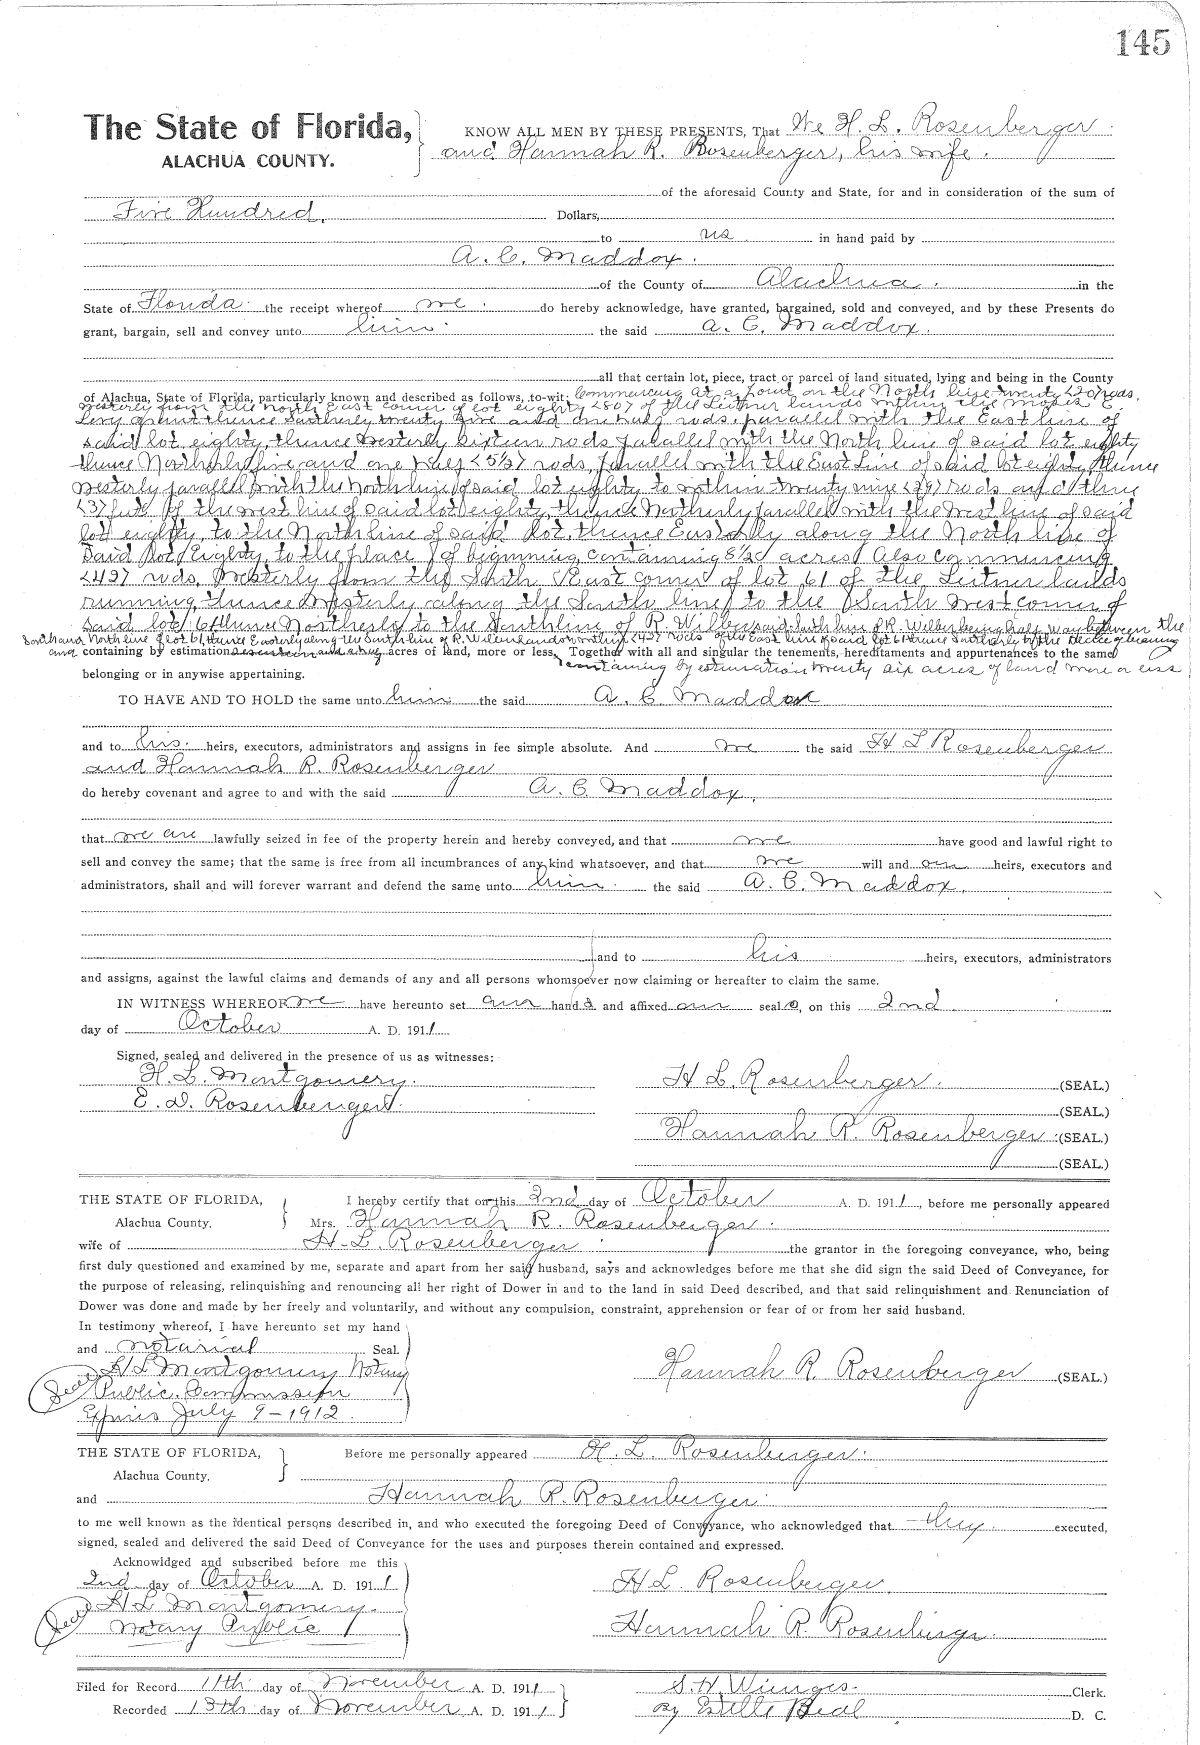 145
The State of Florida,
ALACHUA COUNTY.
KNOW ALL MEN BY THESE PRESENTS, That We H. L. Rosenberger
and Hannah R. Rosenberger, his wife.
of the aforesaid County and State, for and in consideration of the sum of
Five Hundred. Dollars,
to us in hand paid by
A. C. Maddox.
of the County of Alachua. in the
State of Florida. the receipt whereof we do hereby acknowledge, have granted, bargained, sold and conveyed, and by these Presents do
grant, bargain, sell and convey unto him. the said A. C. Maddox.
all that certain lot, piece, tract or parcel of land situated, lying and being in the County
of Alachua, State of Florida, particularly known and described as follows, to-wit: Commencing at a point on the North line twenty <20> rods.
Westerly from the North East corner of lot eighty <80> of the Leitner lands within the Moses E.
Levy Grant thence Southerly twenty five and one half rods. parallel with the East line of
said lot eighty, thence Westerly sixteen rods parallel with the North line of said lot eighty
thence Northerly five and one half <5½> rods, parallel with the East Line of said lot eighty, thence
Westerly parallel with the North line of said lot eighty to within twenty nine <29> rods and three
<3> feet of the west line of said lot eighty, thence Northerly parallel with the West line of said
lot eighty, to the North line of said lot, thence Easterly along the North line of
said lot Eighty, to the place of beginning, containing 8½ acres Also commencing
<42> rods, Westerly from the South East corner of lot 61 of the Leitner lands
running thence Westerly along the South line to the South West corner of
said lot 61 thence Northerly to the South line of R. Wilber said South line of R. Wilber being half way between the
South and North line of lot 61, thence Easterly along the South line of R. Wilber land to within <42> rods of the East line of said lot 61 thence Southerly to the place of beginning
and containing by estimation acres of land, more or less, Together with all and singular the tenements, hereditaments and appurtenances to the same
containing by estimation twenty six acres of land more or less
belonging or in anywise appertaining.
TO HAVE AND TO HOLD the same unto him the said A. C. Maddox
and to his heirs, executors, administrators and assigns in fee simple absolute. And we the said H L Rosenberger
and Hannah R. Rosenberger
do hereby covenant and agree to and with the said A. C. Maddox.
that we are lawfully seized in fee of the property herein and hereby conveyed, and that we have good and lawful right to
sell and convey the same; that the same is free from all incumbrances of any kind whatsoever, and that we will and our heirs, executors and
administrators, shall and will forever warrant and defend the same unto him the said A. C. Maddox.
and to his heirs, executors, administrators
and assigns, against the lawful claims and demands of any and all persons whomsoever now claiming or hereafter to claim the same.
IN WITNESS WHEREOF we have hereunto set our hands and affixed our seals, on this 2nd
day of October A. D. 1911
Signed, sealed and delivered in the presence of us as witnesses:
H. L. Montgomery. H L. Rosenberger. (SEAL.)
E. D. Rosenberger. (SEAL.)
Hannah R. Rosenberger (SEAL.)
(SEAL.)
THE STATE OF FLORIDA, I hereby certify that on this 2nd day of October A. D. 1911, before me personally appeared
Alachua County. Mrs. Hannah R. Rosenberger.
wife of H. L. Rosenberger the grantor in the foregoing conveyance, who, being
first duly questioned and examined by me, separate and apart from her said husband, says and acknowledges before me that she did sign the said Deed of Conveyance, for
the purpose of releasing, relinquishing and renouncing all her right of Dower in and to the land in said Deed described, and that said relinquishment and Renunciation of
Dower was done and made by her freely and voluntarily, and without any compulsion, constraint, apprehension or fear of or from her said husband.
In testimony whereof, I have hereunto set my hand
and notarial Seal.
H L Montgomery Notary Hannah R. Rosenberger (SEAL.)
Seal Public. Commission
Expires July 9-1912.
THE STATE OF FLORIDA, Before me personally appeared H. L. Rosenberger.
Alachua County.
and Hannah R. Rosenberger
to me well known as the identical persons described in, and who executed the foregoing Deed of Conveyance, who acknowledged that they executed,
signed, sealed and delivered the said Deed of Conveyance for the uses and purposes therein contained and expressed.
Acknowldged and subscribed before me this
2nd day of October A. D. 1911 H L. Rosenberger.
Seal H L Montgomery.
Notary Public Hannah R. Rosenberger.
Filed for Record 11th day of November A. D. 1911 S. H. Wienges. Clerk.
Recorded 13th day of November A. D. 1911 By Estelle Beal D. C.